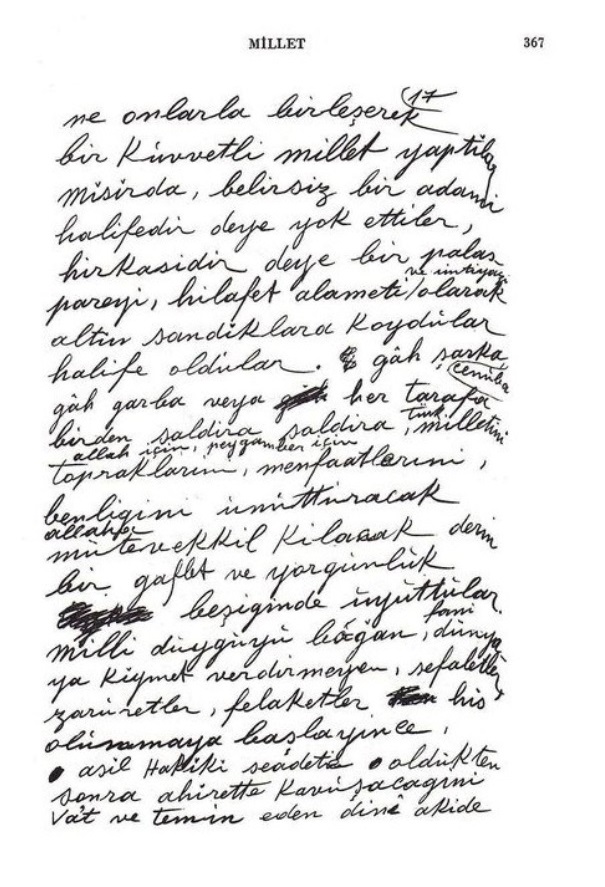 MİLLET 367
17
ne onlarla birleşerek
bir kuvvetli millet yaptılar
mısırda, belirsiz bir adamı
halifedir deye yok ettiler,
hırkasıdır deye bir palas
ve imtiyazı
pareyi, hilafet alameti olarak
altın sandıklara koydular
halife oldular. gâh şarka,
cenuba
gâh garba veya her tarafa
türk
birden saldıra saldıra, milletini
allah için, peygamber için
topraklarını, menfaatlerini,
benliğini unutturacak
allahla
mütevekkil kılacak derin
bir gaflet ve yorgunluk
beşiginde uyuttular.
fani
milli duyguyu boğan, dünya
ya kıymet verdirmeyen, sefaletler,
zaruretler, felaketler his
olunmaya başlayınce,
asıl Hakiki seâdete oldükten
sonra ahirette kavuşacagını
va't ve temin eden dinî akide